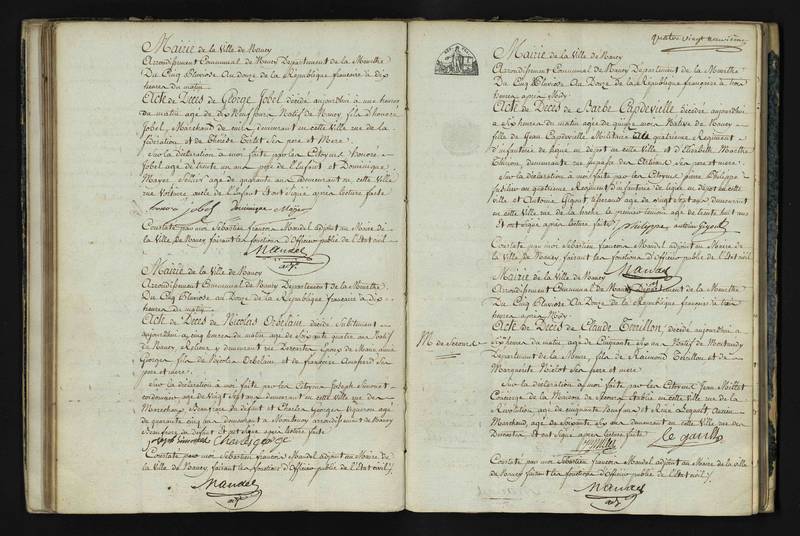 Mairie de la Ville de Nancy
Arrondissement Communal de Nancy Département de la Meurthe
Du Cinq Pluviose An douze de la République française à dix
heures du matin
Acte de Décès de George Jobel décédé aujourd'hui à une heure
du matin age de dix Neuf jours Natif de Nancy fils d'honoré
Jobel, Marchand de demeurant en cette Ville rue de la
fédération et de Thérèse Son père et Mère.
Sur la déclaration à moi faite par les Citoyens honoré
Jobel age de trente un ans père de l'Enfant et Dominique
Mayer Sellier age de quarante ans demeurant en cette Ville
rue Voltaire de l'Enfant Et ont Signé après lecture faite
honoré Jobel Dominique Mayer
Constaté par moi Sébastien françois Mandel adjoint au Maire de
la Ville De Nancy faisant les fonctions d'Officier public de l'État civil
Mandel
adjt
Mairie de la Ville de Nancy
Arrondissement Communal de Nancy Département de la Meurthe
Du Cinq Pluviose An Douze De la République française à dix
heures du matin
Acte de Décès de Nicolas Orbelain décédé Subitement
aujourd'hui à cinq heures du matin age de Soixante quatre ans Natif
de Nancy, y demeurant rue Descartes Epoux de Marie anne
Georges fils de Nicolas Orbelain et de françoise Son
père et mère.
Sur la déclaration à moi faite par les Citoyens Joseph Simonet
cordonnier age de Vingt Sept ans demeurant en cette Ville rue de
Marechaux Beaufrere du défunt et Charles Georges Vigneron age
de quarante cinq ans demeurant à arrondissement de Nancy
Beaufrere du défunt Et ont signé après lecture faite
joseph Simonet Charles george
Constaté par moi Sébastien françois Mandel adjoint au Maire de
la Ville de Nancy, faisant les fonctions d'Officier public de l'État civil
Mandel
adjt
quatre vingt neuvième
Mairie de la Ville de Nancy
Arrondissement Communal de Nancy Département de la Meurthe
Du Cinq Pluviose An Douze De la République française à trois
heures après Midy
Acte de Décès de Barbe Capdevielle décédée aujourd'hui
à Six heures du matin agée de quinze mois Native de Nancy
fille de Jean Capdevielle Militaire au quatrieme Regiment
d'infanterie de ligne en dépot en cette Ville et d'Elizabeth Marthe
demeurante rue Son père et mère
Sur la déclaration à moi faite par les Citoyens pierre Philippe
fusilier au quatrieme Regiment d'infanterie de ligne en dépot en cette
ville et Antoine Gigout age de vingt Sept ans demeurant
en cette Ville rue de la le premier témoin age de trente huit ans
Et ont signé après lecture faite Philippe antoine Gigout
Constaté par moi Sébastien françois Mandel adjoint au Maire de
la Ville de Nancy faisant les fonctions d'Officier public de l'État civil
Mandel
adjt
Mairie de la Ville de Nancy
Arrondissement Communal de Nancy Département de la Meurthe
Du Cinq Pluviose An Douze de la République française à trois
heures après Midy
Acte de Décès de Claude Terillon, décédé aujourd'hui à
M de Secours
heures du matin, age de Cinquante Six ans Natif de
Département de la Meuse, fils de Raimond Terillon et de
Marguerite Son père et mère
Sur la déclaration à moi faite par les Citoyens Jean Millet
Concierge de la Maison de Secours Etablie en cette Ville rue de la
Révolution age de cinquante Neuf ans et René Legault Ancien
Marchand, age de Soixante Six ans demeurant en cette Ville rue de
Et ont Signé après lecture faite
Millet Le gault
Constaté par moi Sébastien françois Mandel adjoint au Maire de la ville
de Nancy faisant les fonctions d'Officier public de l'État civil
Mandel
adjt